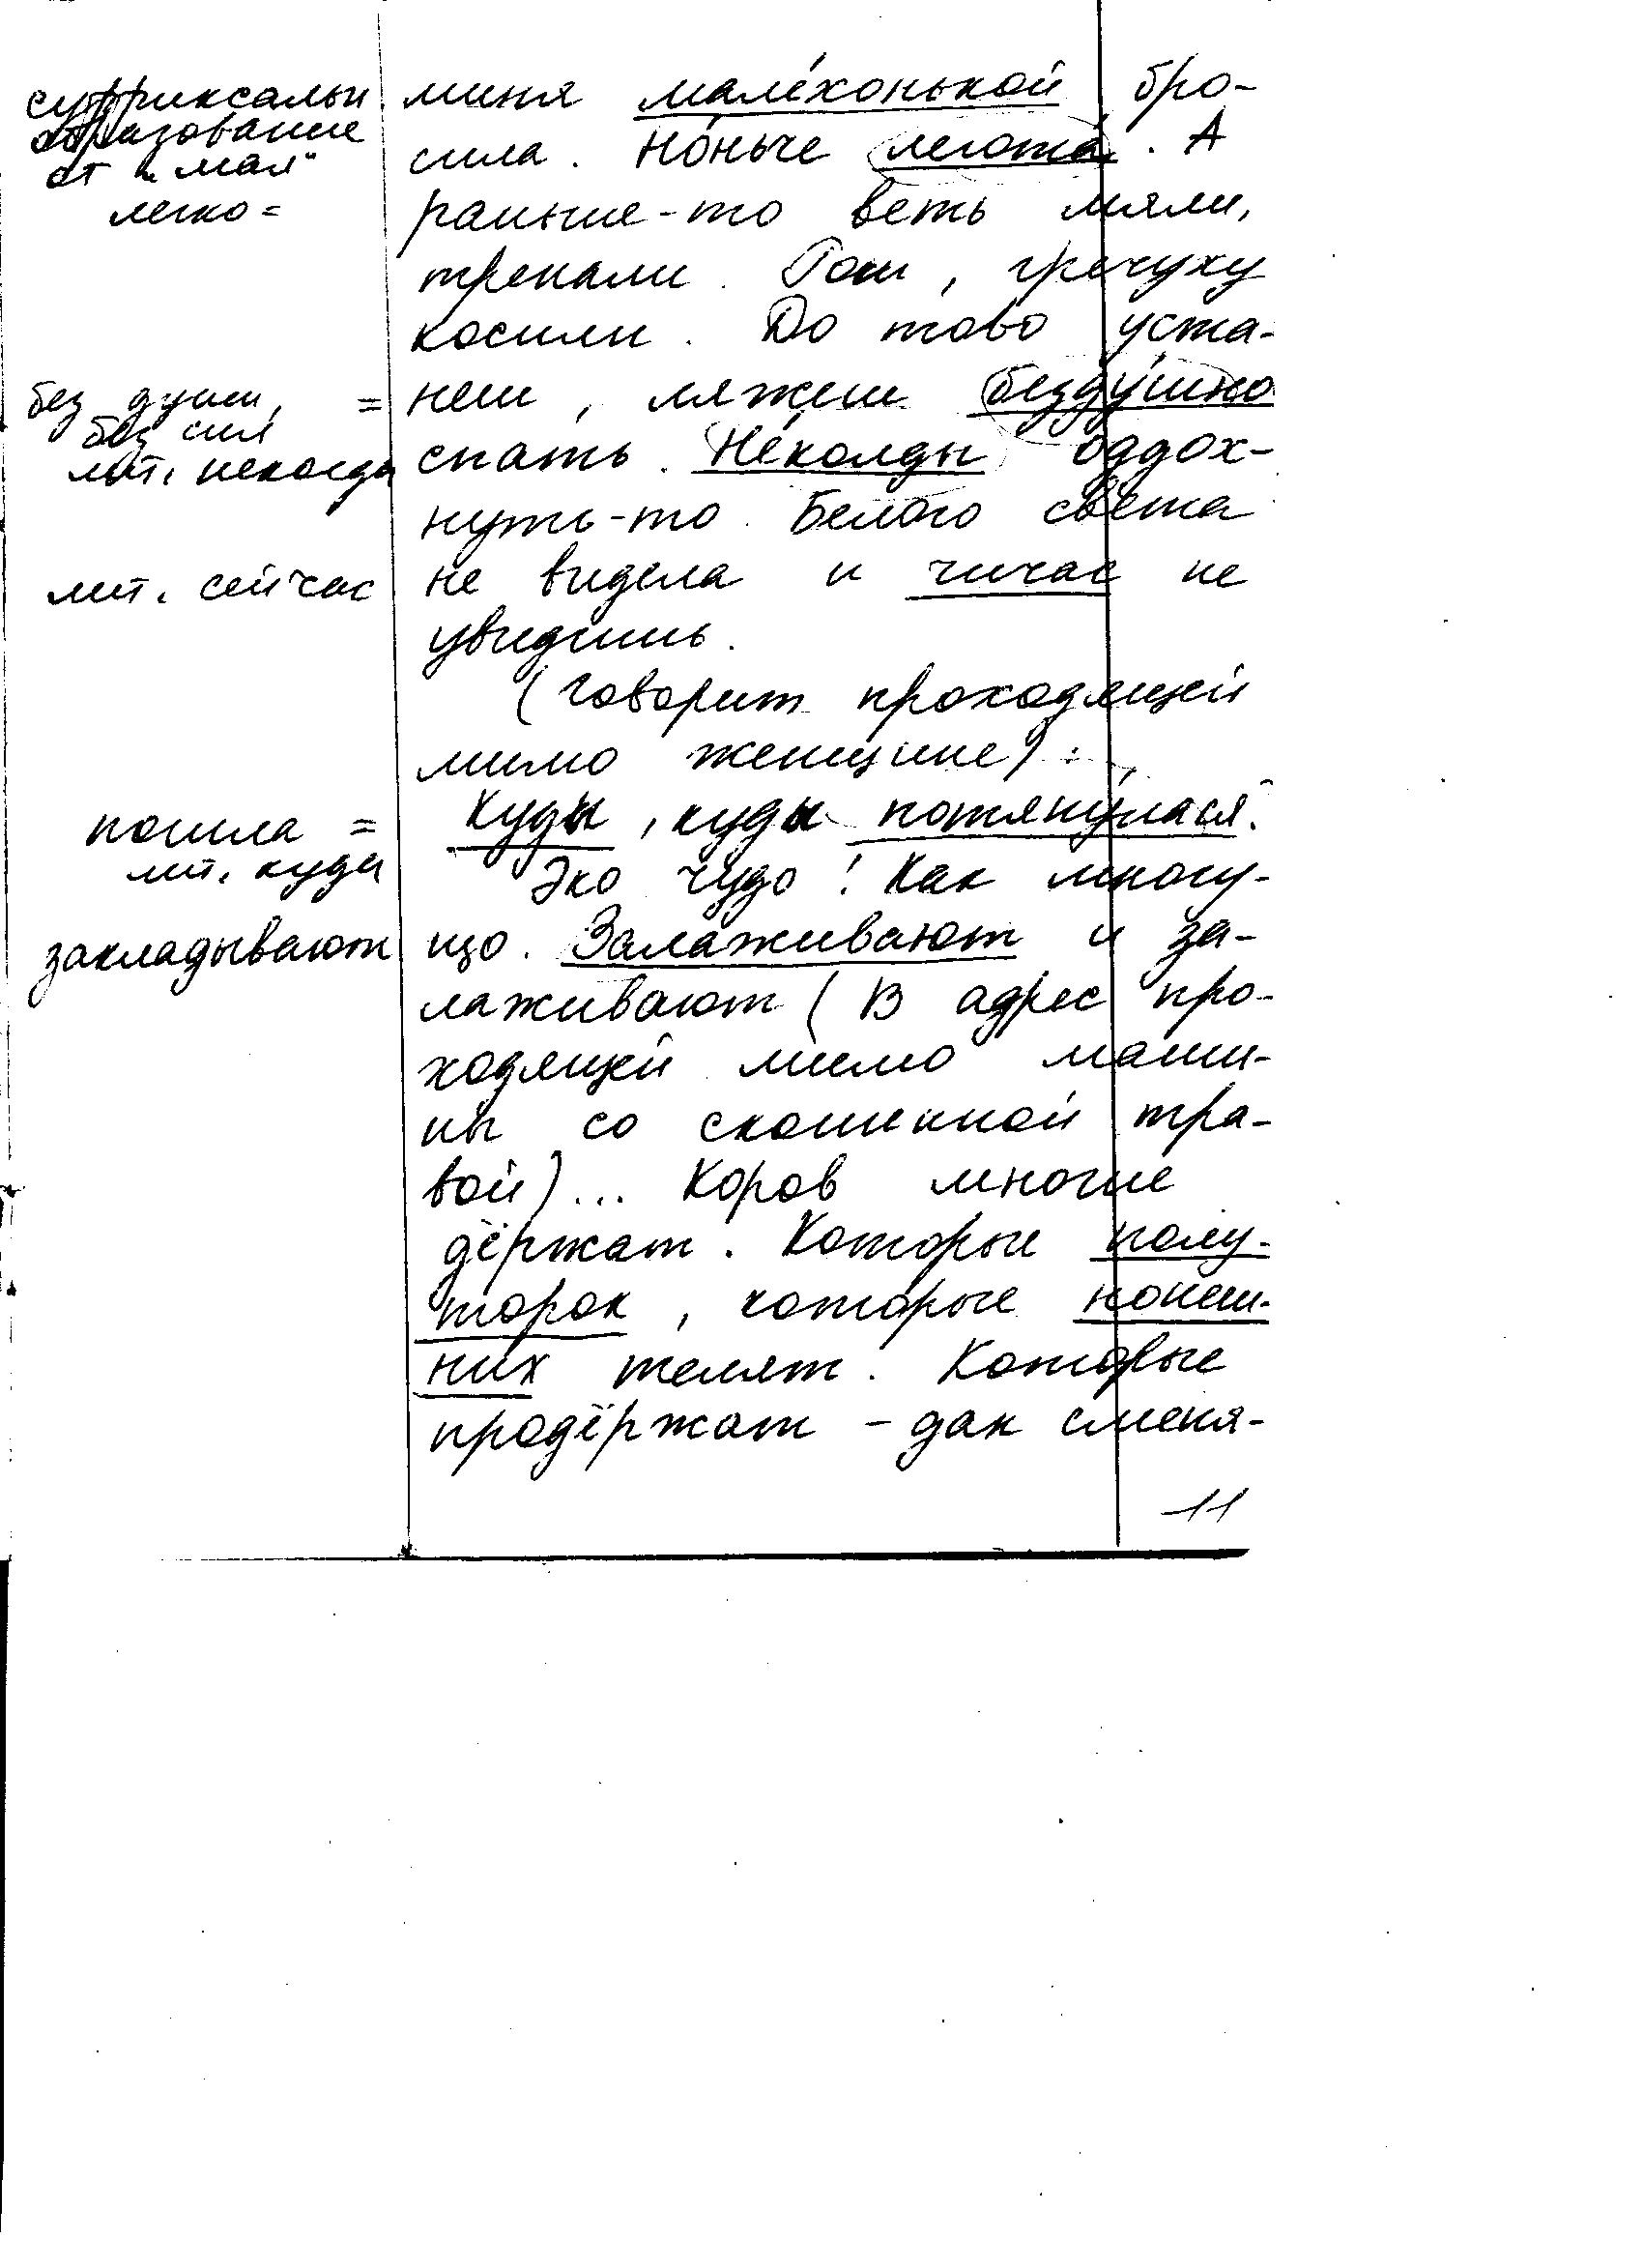 суффиксальн.
образование
от „мал“
легко =
без души, =
без сил
лит. некогда
лит. сейчас
пошла =
лит. куда
закладывают
миня малёхонькой бро-
сила. Но́ньче легота́. А
раньше-то веть мяли,
трепали. Рош, гречуху
косили. До тово уста-
неш, ляжеш безду́шно
спать. Не́колды оддох-
нуть-то. Белого света
не видела и чичас не
увидишь.
(говорит проходящей
мимо женщине):
Куды, куды потяну́лася.
Эко чудо! Как многу-
що. Зала́живают и за-
лаживают (В адрес про-
ходящей мимо маши-
ны со скошенной тра-
вой)... Коров многие
дёржат. Которые полу-
торок, которые нонеш-
них телят. Которые
продёржат – дак сменя-
11